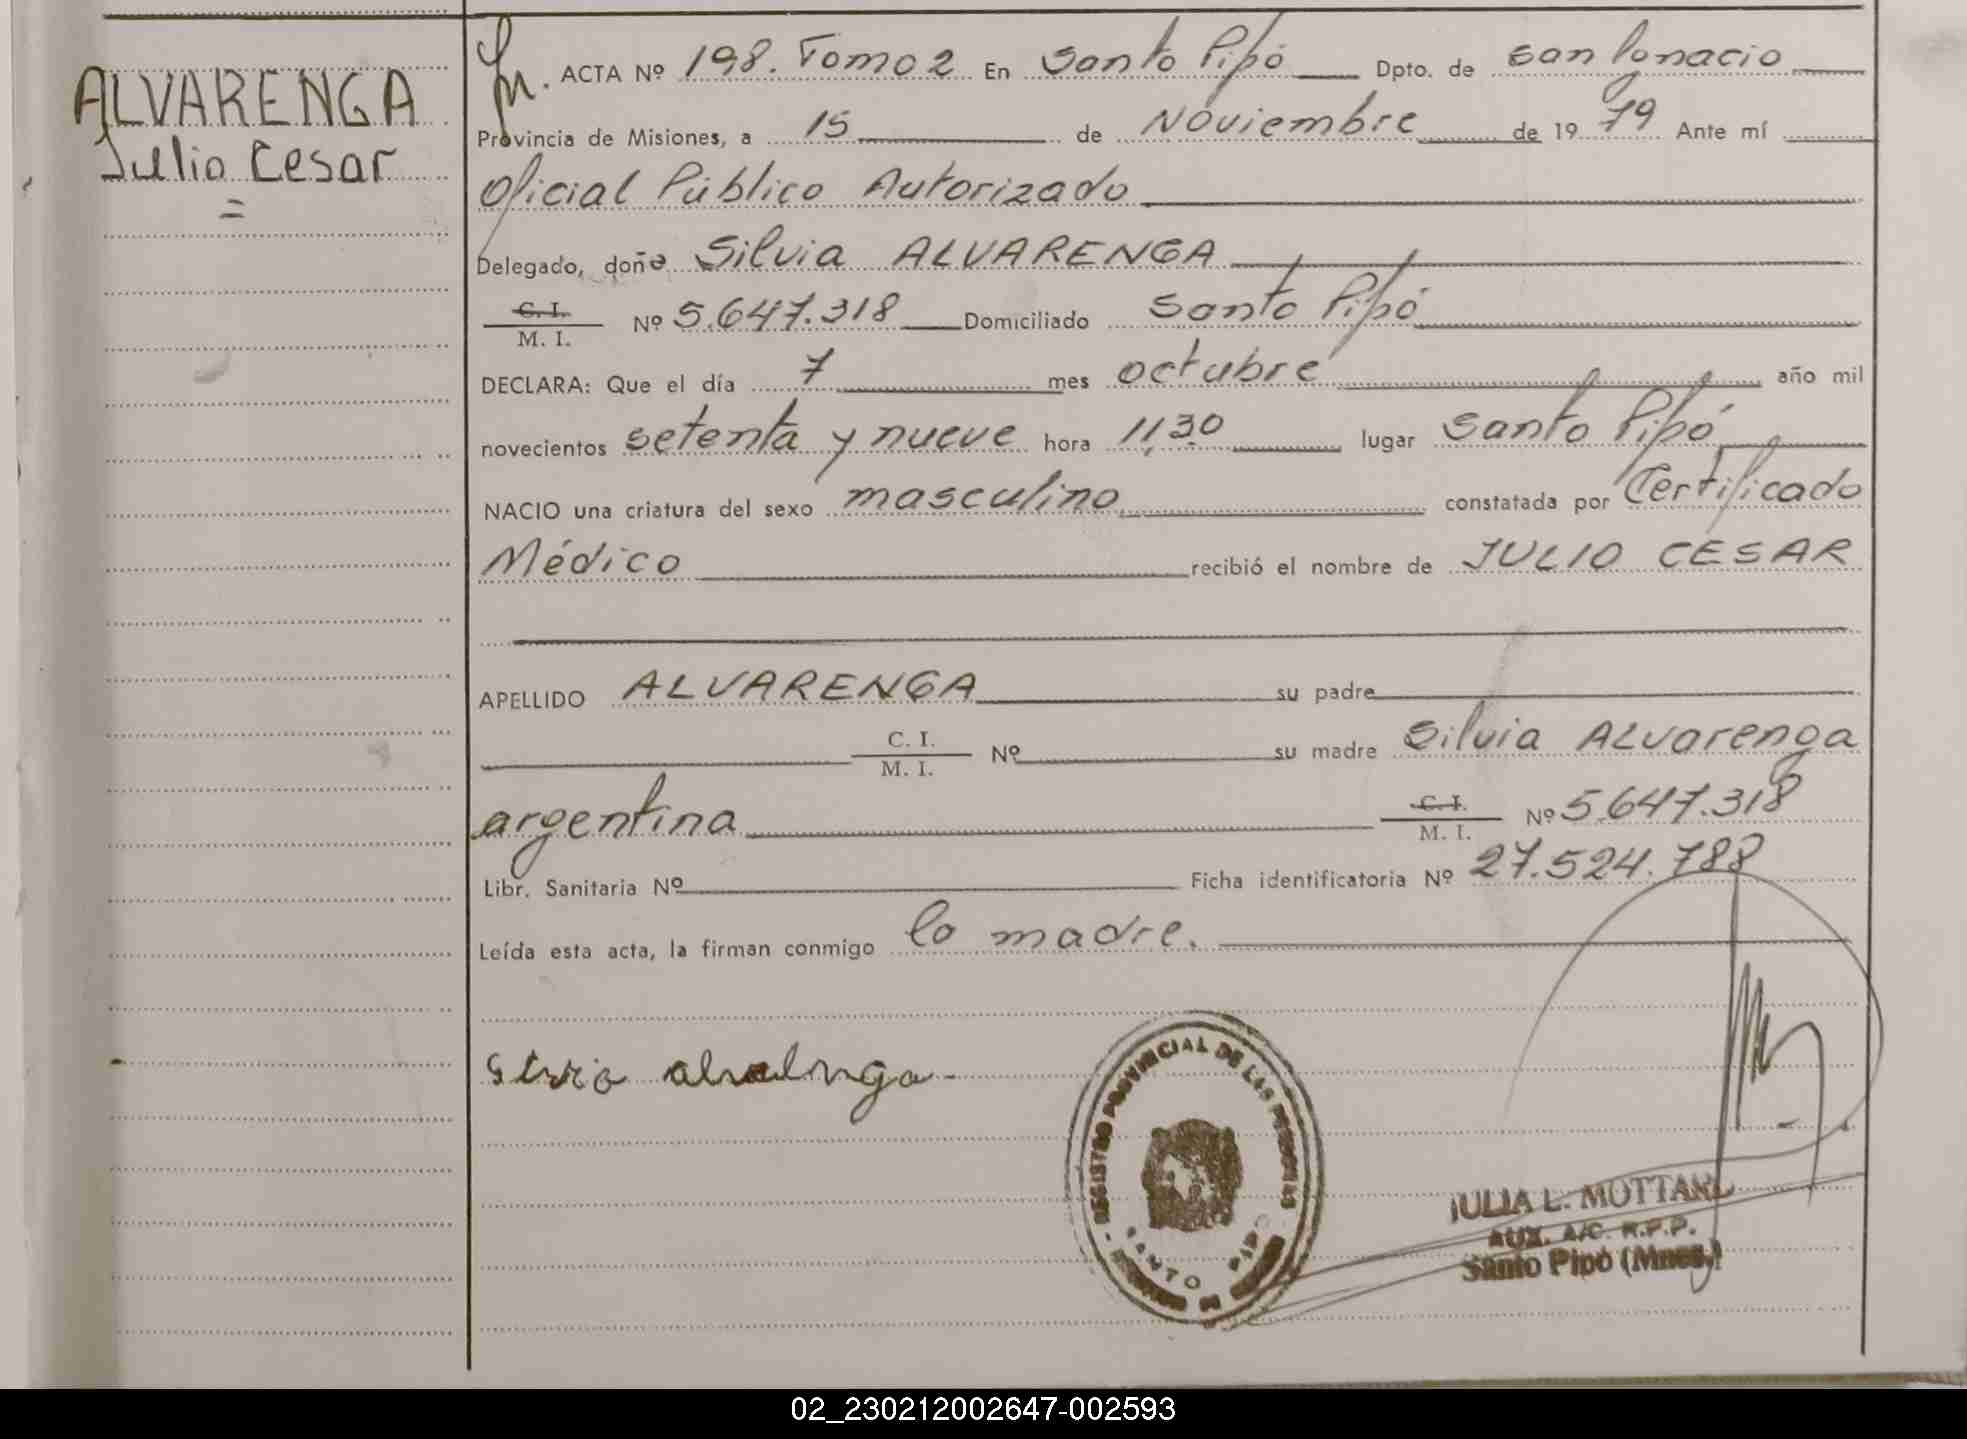 ALVARENGA
Julio Cesar
=
ACTA Nº 198. Tomo 2 En Santo Pipó Dpto. de San Ignacio
Provincia de Misiones, a 15 de Noviembre de 19 79 Ante mí
Oficial Público Autorizado
Delegado, doña Silvia ALVARENGA
C. I.
M. I. Nº 5.647.318 Domiciliado Santo Pipó
DECLARA: Que el día 7 mes octubre año mil
novecientos setenta y nueve hora 11,30 lugar Santo Pipó
NACIO una criatura del sexo masculino constatada por Certificado
Médico recibió el nombre de JULIO CESAR
APELLIDO ALVARENGA su padre
C. I.
M. I. Nº su madre Silvia ALvarenga
argentina C. I.
M. I. Nº 5.647.318
Libr. Sanitaria Nº Ficha identificatoria Nº 27.524.788
Leída esta acta, la firman conmigo la madre.
REGISTRO PROVINCIAL DE LAS PERSONAS
SANTO PIPO
JULIA L. MOTTARI
AUX. A/C. R.P.P.
Santo Pipó (Mnes.)
02_230212002647-002593